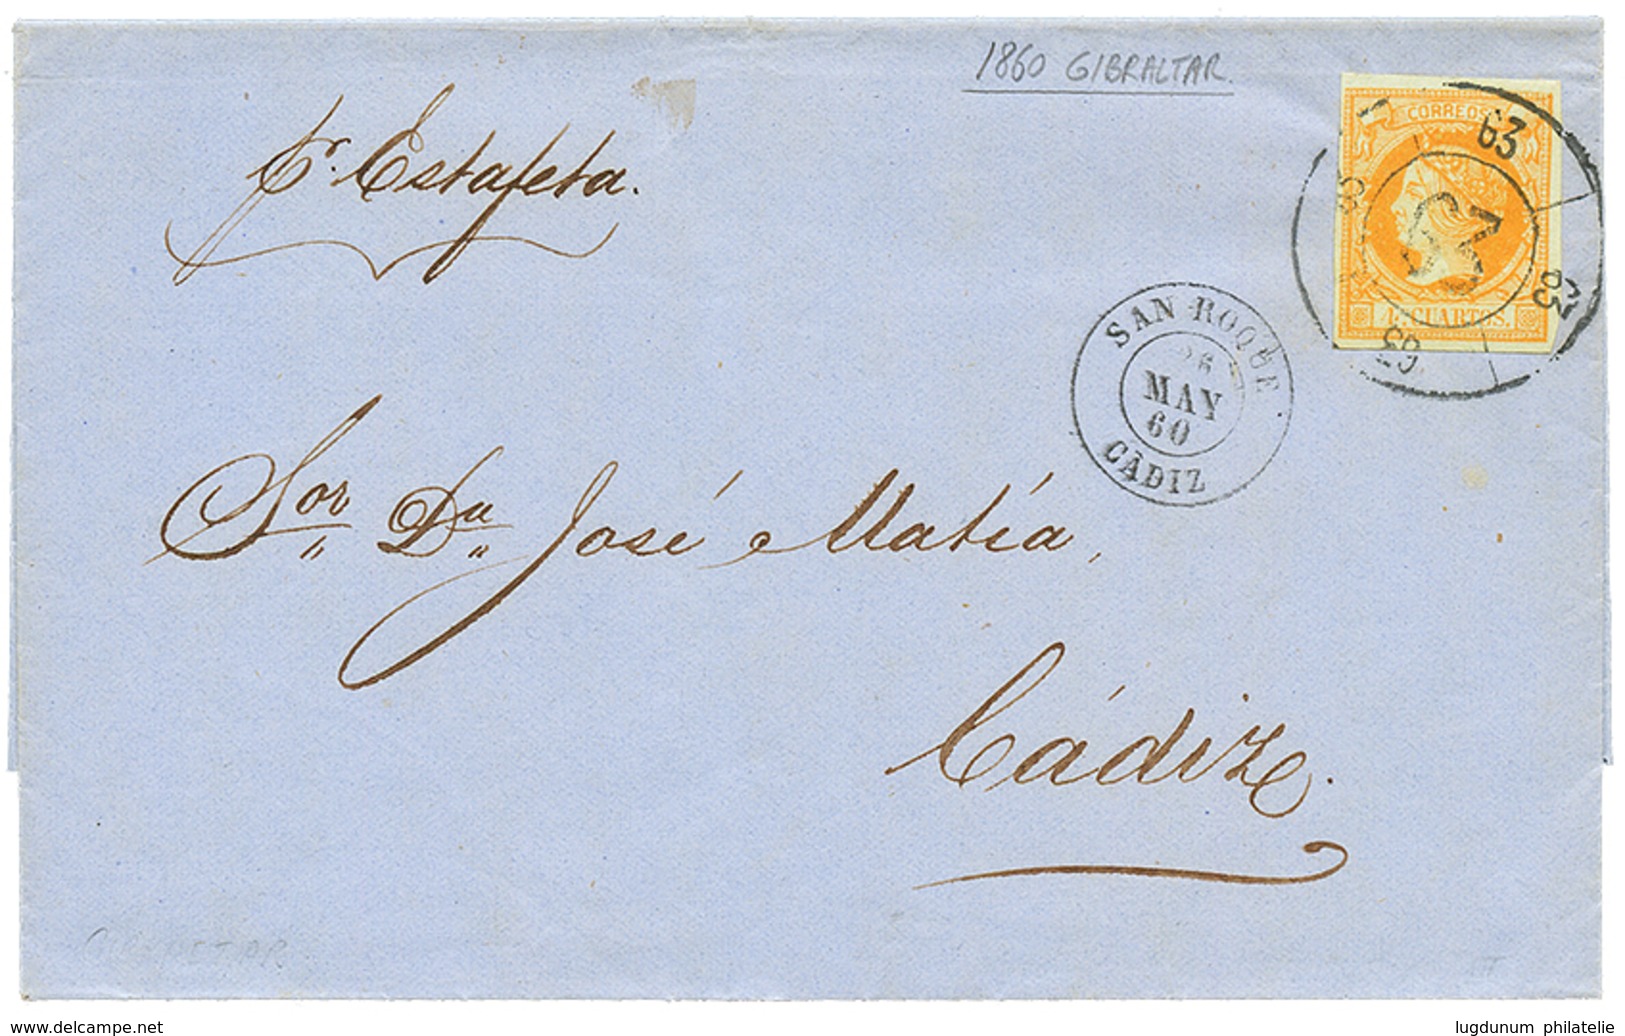 1860 GIBRALTAR.
pr. Estafeta.
CORREOS
63
63
63
63
4 CUARTOS.
SAN ROQUE
26
MAY
60
CÁDIZ
Sor Dn José Matía,
Cádiz.
GIBRALTAR
delcampe.net
lugdunum philatelie